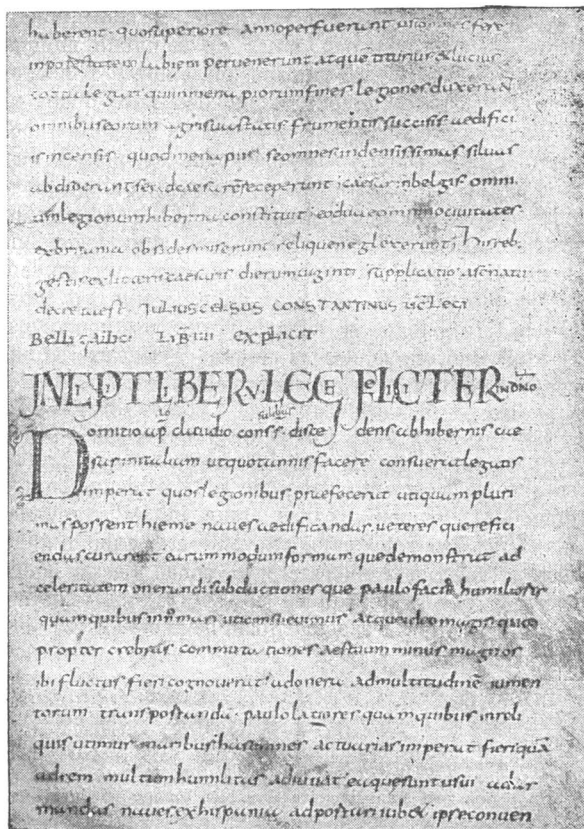 haberent · quosuperiore annoperfuerant
inpotestatem labieni pervenerunt atque titurius &lucius
cotta legati quiinmenapiorumfines legiones duxerāt
omnibuseorum agrisvastatis frumentissuccisis aedifici
isincensis quodmenapii seomnesindensissimas silvas
abdiderant seadcaesarē receperunt; caesar inbelgis omni
umlegionumhiberna constituit eoduaeomninocivitates
exbritania obsidesmiserunt reliquaeneglexerunt; hisreb
gestis exlitteris caesaris dierumviginti supplicatio asenatu
decretaest JULIUS CELSUS CONSTANTINUS VC̄ LEGI
Belli Gallici LIB̄ IIII explicit
INCIPIT LIBER V LEGE FELICITER INDNO
Domitio ap̄ claudio conss discedens abhibernis cae
sar initaliam utquotannis facere consuerat legatis
imperat quos legionibus praefecerat utiquam pluri
mas possent hieme naves aedificandas veteres querefici
endas curarent earum modumformam quedemonstrat ad
celeritatem onerandi subductiones que paulo facit humiliores
quamquibus inn̄o mari uticonsuevimus atqueideo magis quod
propter crebras commutationes aestuum minus magnos
ibi fluctus fieri cognoverat adonera admultitudinē iumen
torum transportandā · paulo latiores quamquibus inreli
quis utimur maribus hasomnes actuarias imperat fieri quā
adrem multum humilitas adiuvat eaquesunt usui adar
mandas naves exhispania adportari iub& ipse conven